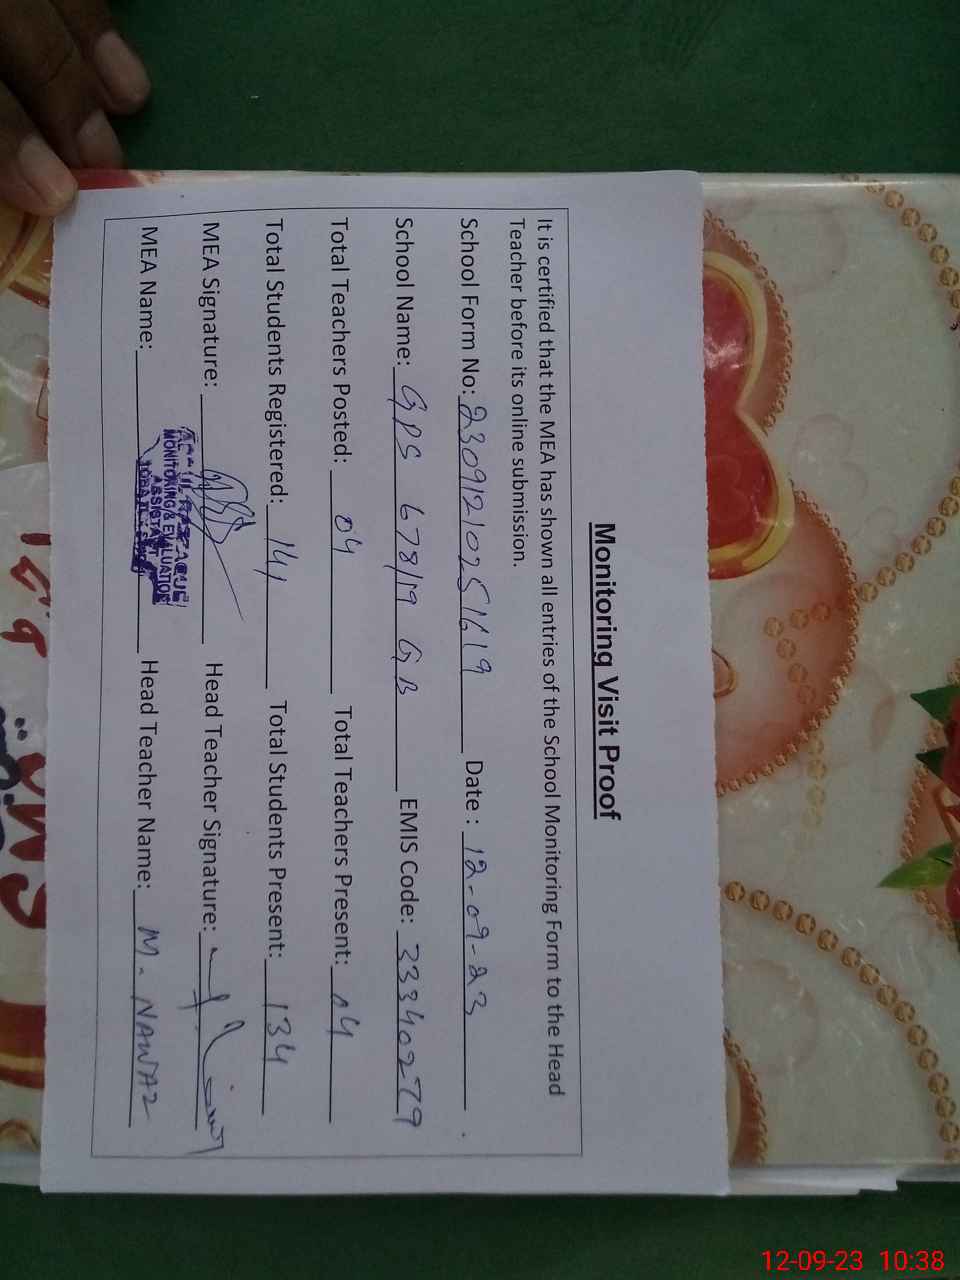 Monitoring Visit Proof
It is certified that the MEA has shown all entries of the School Monitoring Form to the Head
Teacher before its online submission.
School Form No: 23091210251619 Date : 12-09-23
School Name: GPS 678/19 GB EMIS Code: 33340279
Total Teachers Posted: 04 Total Teachers Present: 04
Total Students Registered: 141 Total Students Present: 134
MEA Signature: Head Teacher Signature:
MEA Name: Head Teacher Name: M. NAWAZ
MONITORING & EVALUATION
ASSISTANT
12-09-23 10:38